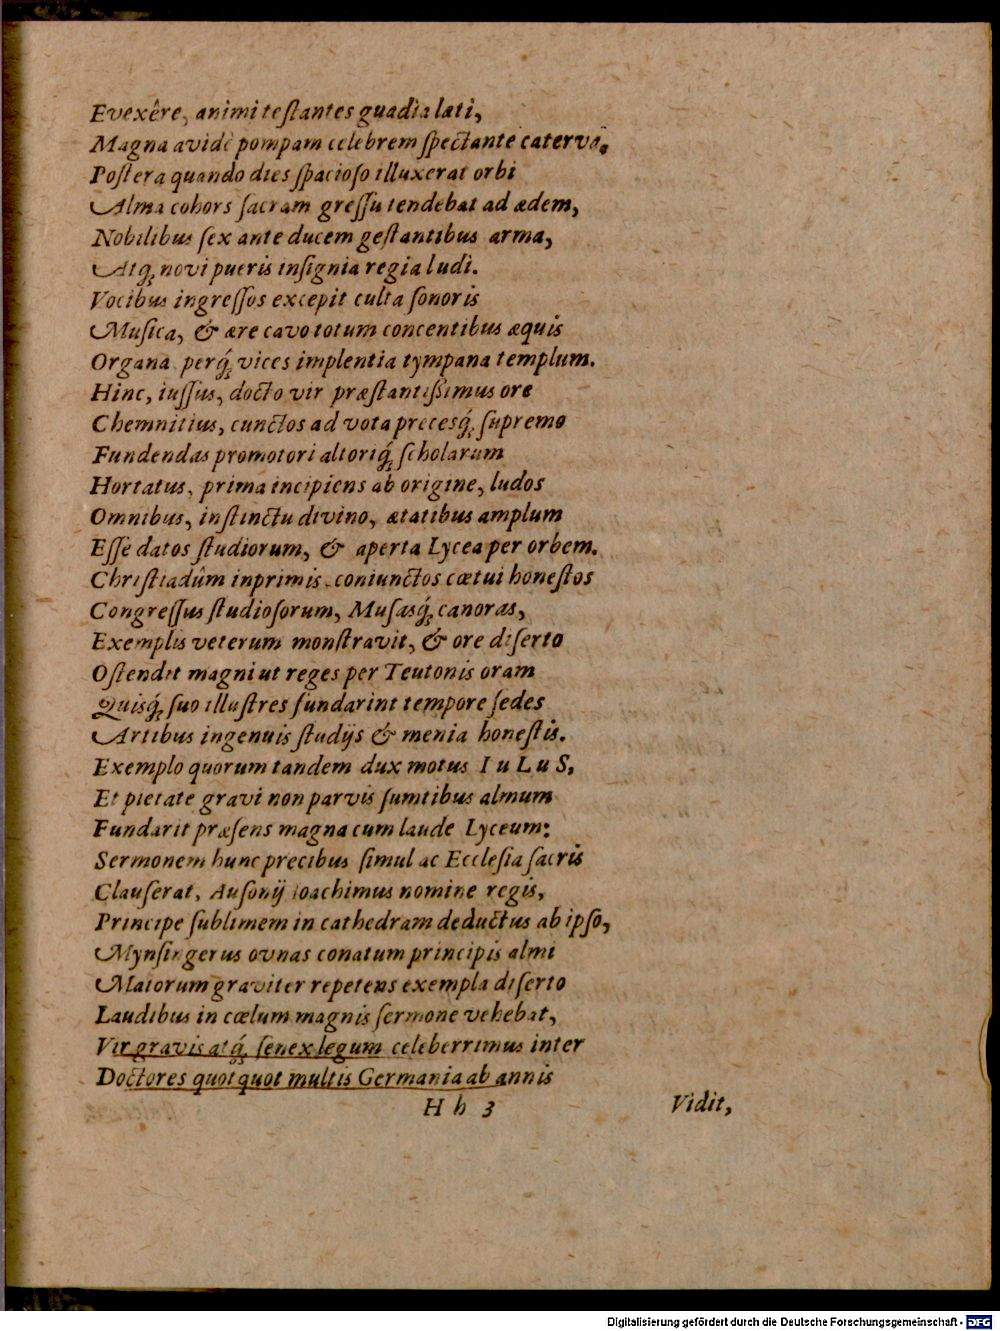 Evexêre, animi teſtantes guadia lati,
Magna avidè pompam celebrem ſpectante catervâ.
Poſtera quando dies ſpacioſo illuxerat orbi
Alma cohors ſacram greſſu tendebat ad ædem,
Nobilibus ſex ante ducem geſtantibus arma,
Atq́; novi pueris inſignia regia ludi.
Vocibus ingreſſos excepit culta ſonoris
Muſica, & ære cavo totum concentibus æquis
Organa perq́; vices implentia tympana templum.
Hinc, iuſſus, docto vir præſtantißimus ore
Chemnitius, cunctos ad vota precesq́; ſupremo
Fundendas promotori altoriq́; ſcholarum
Hortatus, prima incipiens ab origine, ludos
Omnibus, inſtinctu divino, ætatibus amplum
Eſſe datos ſtudiorum, & aperta Lycea per orbem.
Chriſtiadûm inprimis coniunctos cœtui honeſtos
Congreſſus ſtudioſorum, Muſasq́; canoras,
Exemplis veterum monſtravit, & ore diſerto
Oſtendit magni ut reges per Teutonis oram
Quisq́; ſuo illuſtres fundarint tempore ſedes
Artibus ingenuis ſtudijs & menia honeſtis.
Exemplo quorum tandem dux motus I u L u S,
Et pietate gravi non parvis ſumtibus almum
Fundarit præſens magna cum laude Lyceum:
Sermonem hunc precibus ſimul ac Eccleſia ſacris
Clauſerat, Auſonij Ioachimus nomine regis,
Principe ſublimem in cathedram deductus ab ipſo,
Mynſingerus ovnas conatum principis almi
Maiorum graviter repetens exempla diſerto
Laudibus in cœlum magnis ſermone vehebat,
Vir gravis atq́; ſenex legum celeberrimus inter
Doctores quotquot multis Germania ab annis
H h 3 Vidit,
Digitalisierung gefördert durch die Deutsche Forschungsgemeinschaft - DFG